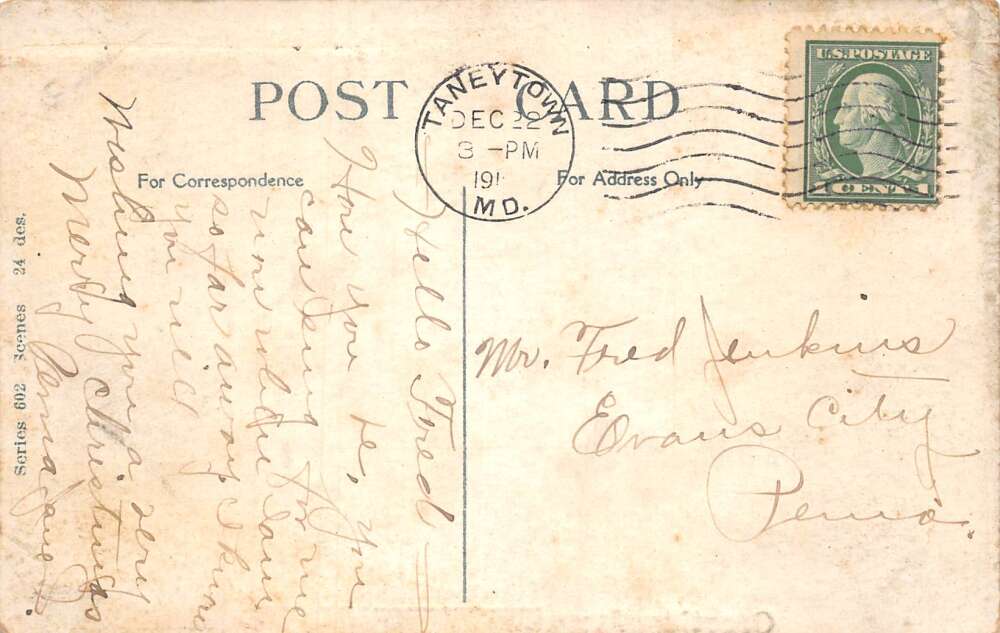 POST CARD
For Correspondence
For Address Only
TANEYTOWN
DEC 22
3 -PM
191
MD.
U.S. POSTAGE
1 CENT 1
Hello Fred
How you be, you
can send for me
now when I am
so far away I know
you will
Wishing you a very
Merry Christmas
Mr. Fred Jenkins
Evans City
Penna.
Series 602 Scenes 24 des.